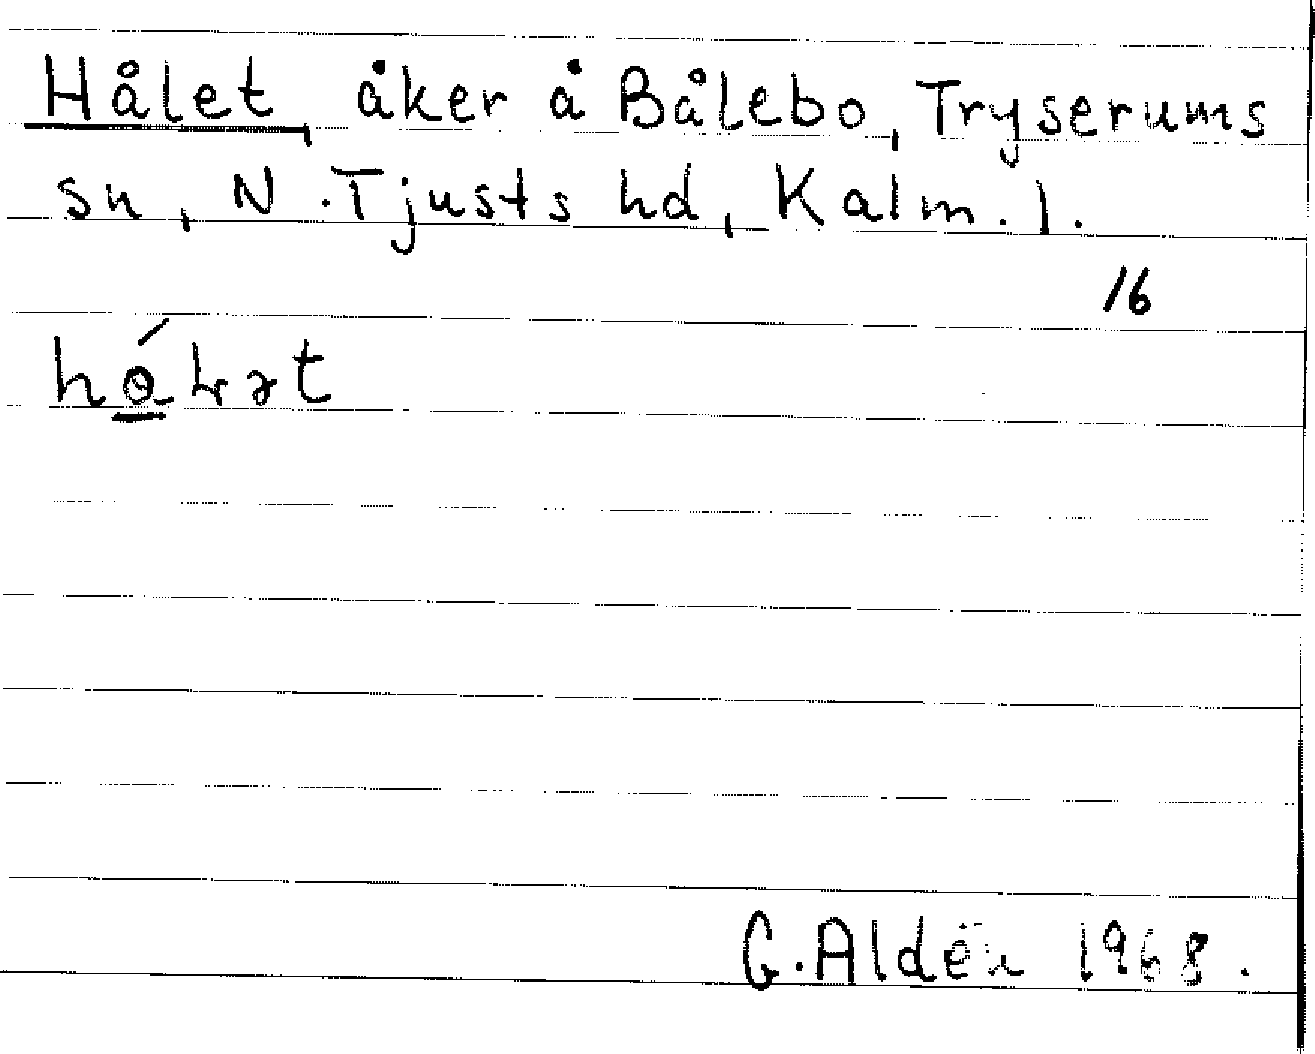 Hålet, åker å Bålebo, Tryserums
sn, N. Tjusts hd, Kalm. l.
16
G. Aldén 1968.